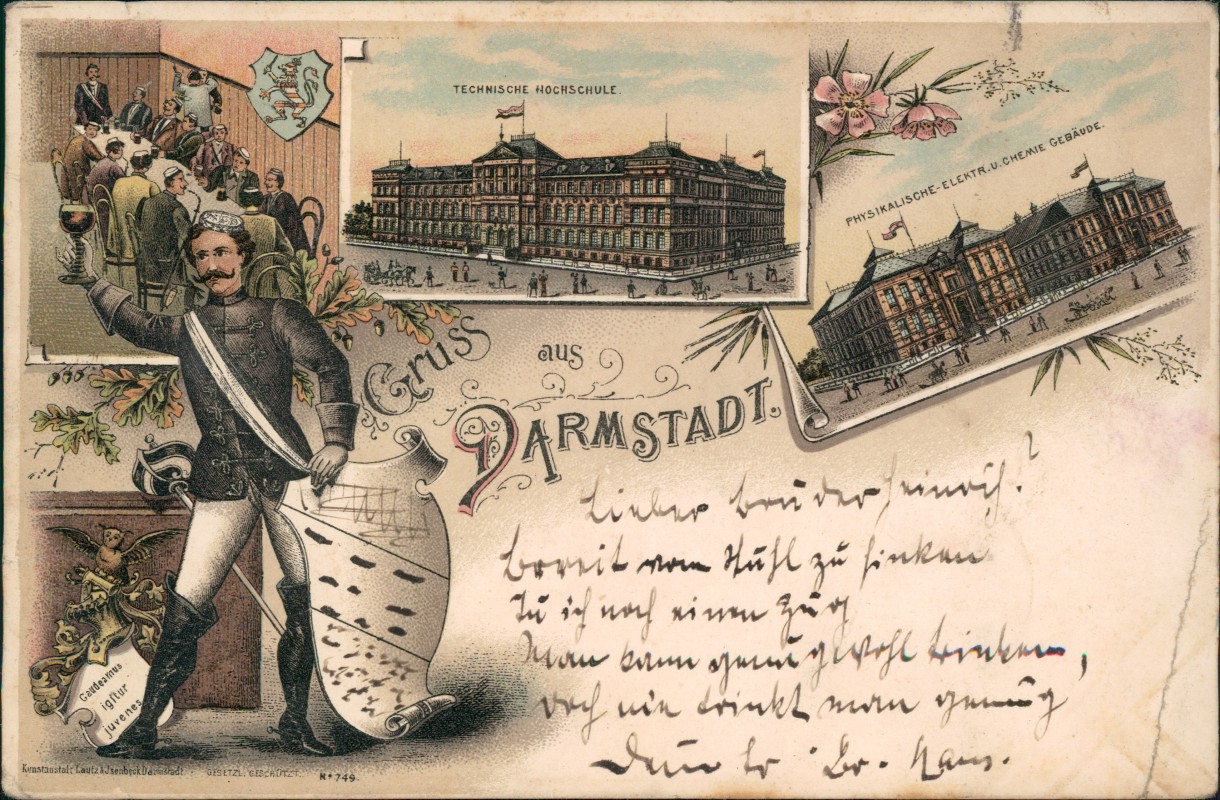 TECHNISCHE HOCHSCHULE.
PHYSIKALISCHE-ELEKTR. U. CHEMIE GEBÄUDE.
Gruss
aus
DARMSTADT.
Lieber Bruder Heinrich!
Bereit vom Stuhl zu sinken
Tu ich noch einen Zug
Man kann genug wohl trinken,
doch nie trinkt man genug
Dein tr. Br. Hans.
Gaudeamus
igitur
juvenes
Kunstanstalt Lautz & Isenbeck Darmstadt.
GESETZL. GESCHÜTZT.
No 749.